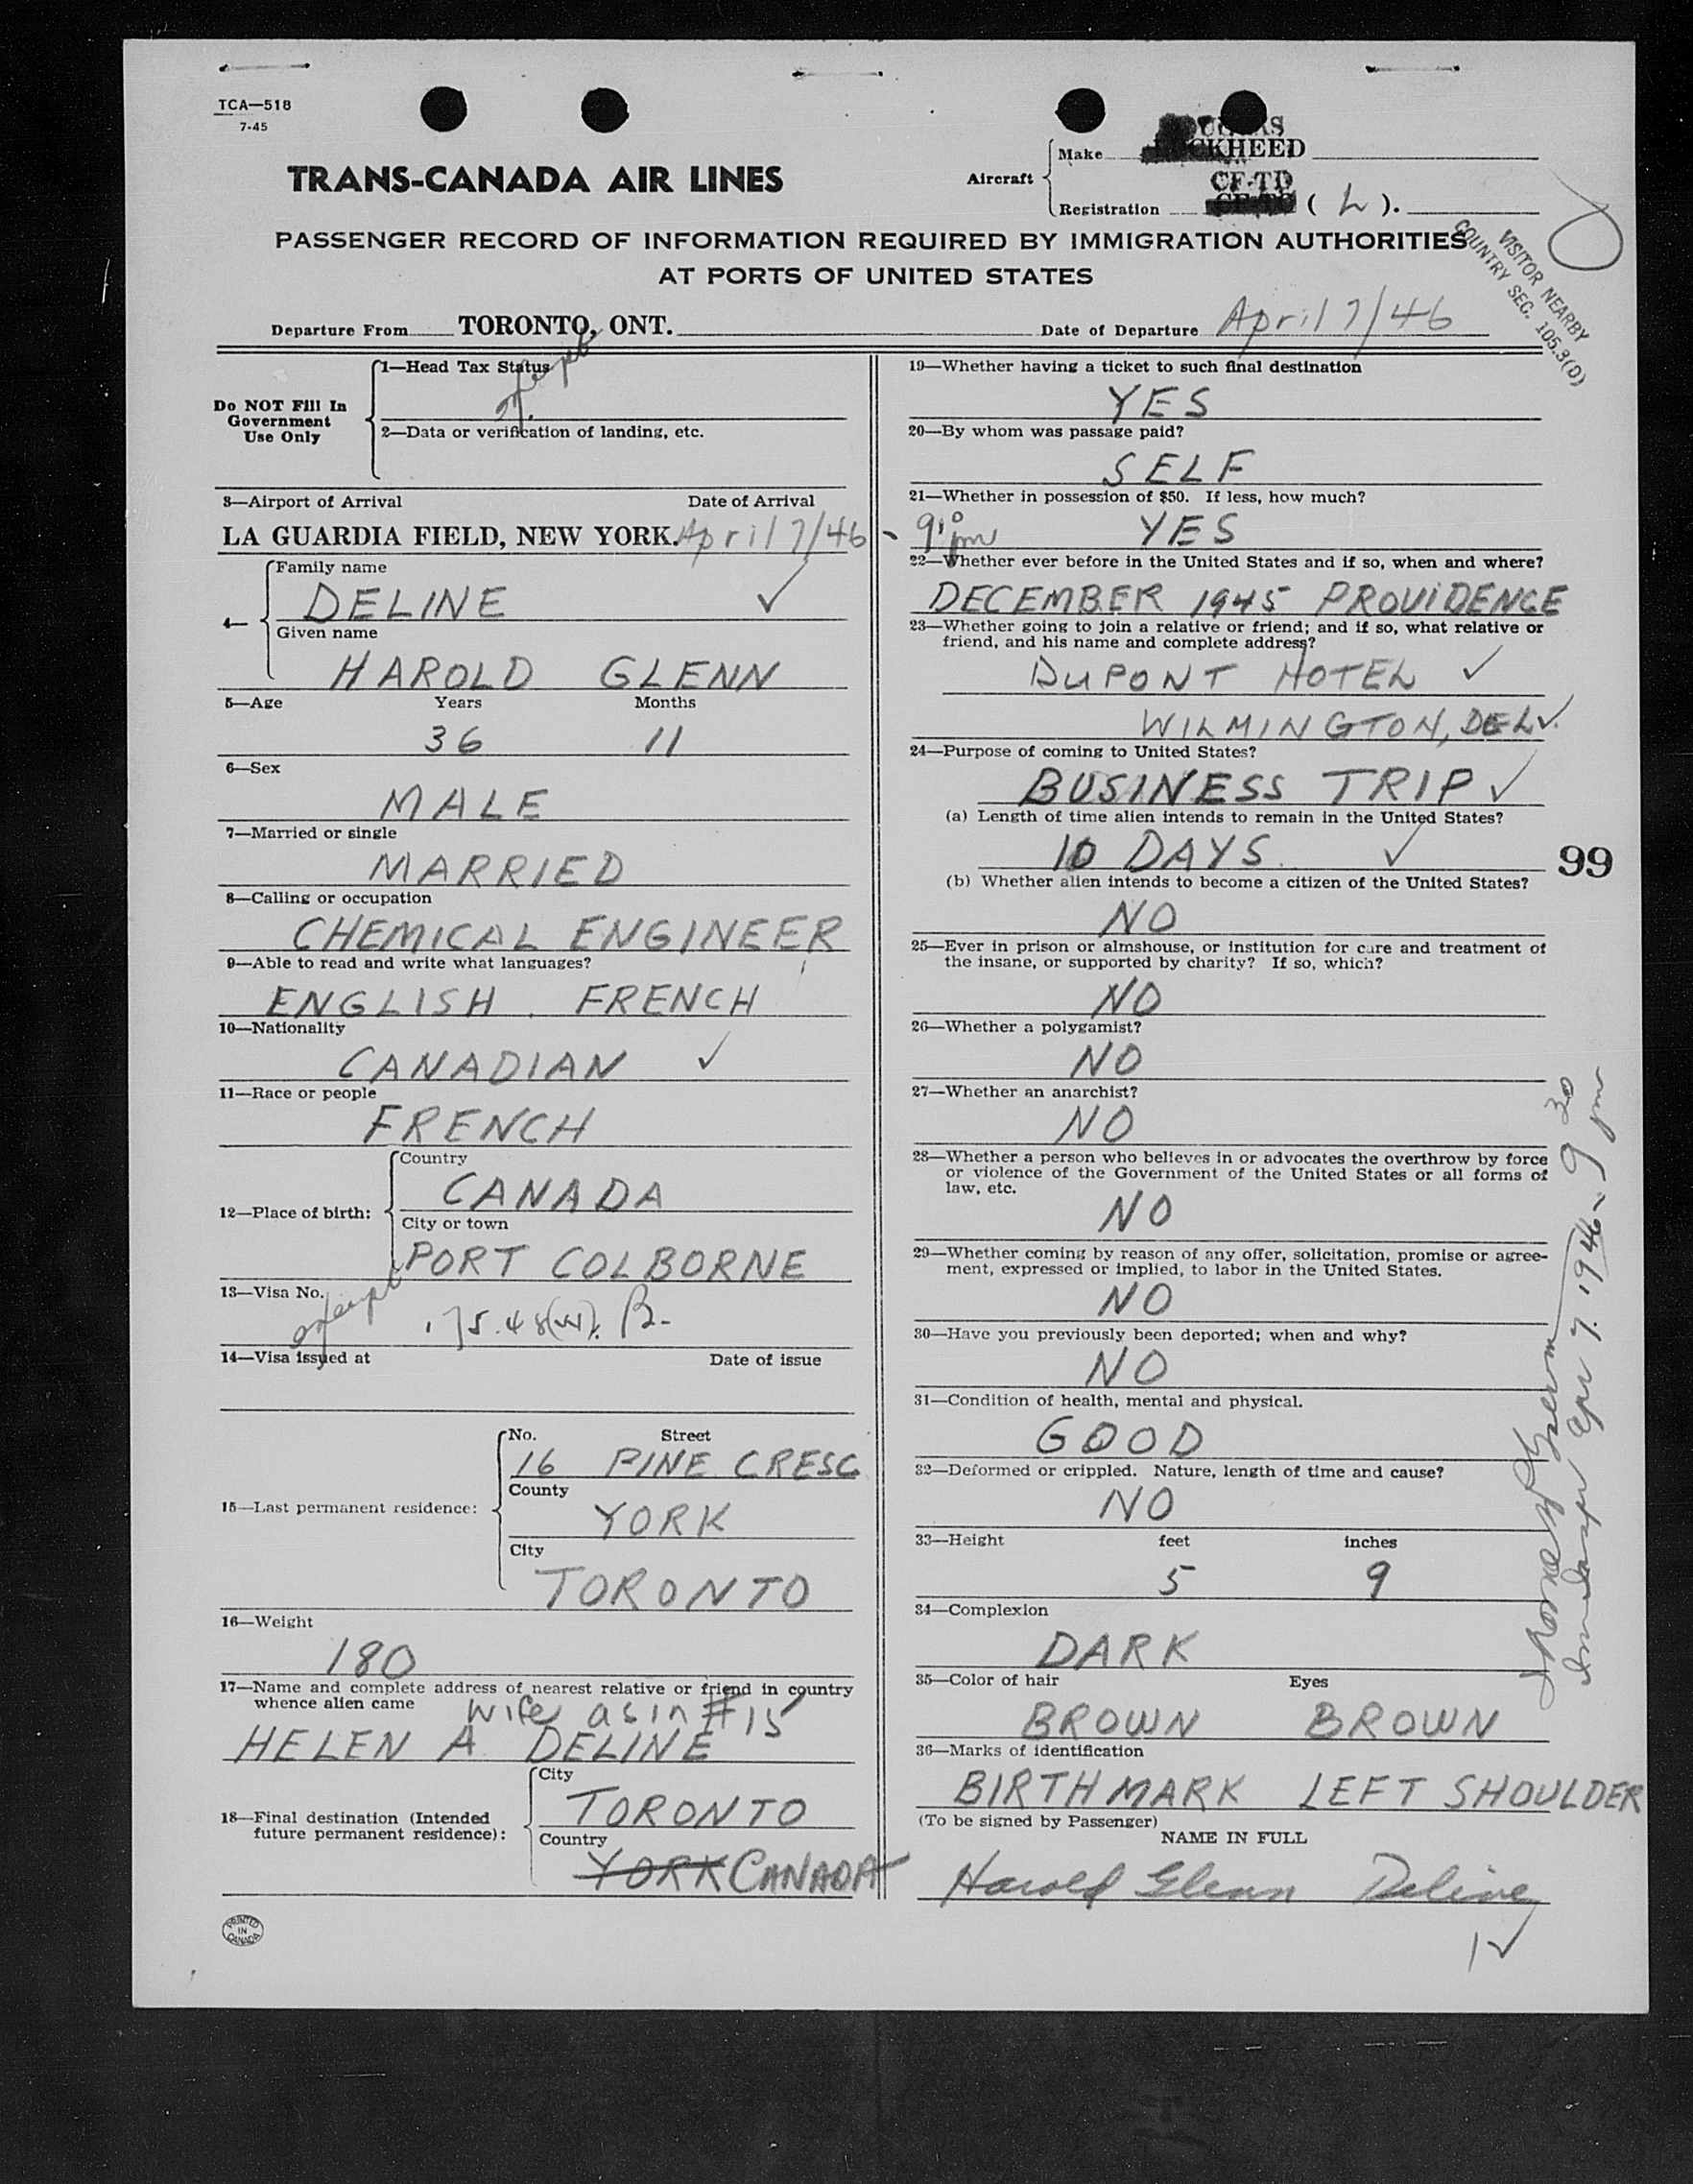 TCA—518
7-45
TRANS-CANADA AIR LINES
Aircraft
Make
CKHEED
CF-TD
Registration ( L ).
PASSENGER RECORD OF INFORMATION REQUIRED BY IMMIGRATION AUTHORITIES
AT PORTS OF UNITED STATES
VISITOR NEARBY
COUNTRY SEC. 105.3(D)
Departure From TORONTO, ONT. Date of Departure April 7/46
Do NOT Fill In
Government
Use Only
1—Head Tax Status
exempt
2—Data or verification of landing, etc.
3—Airport of Arrival Date of Arrival
LA GUARDIA FIELD, NEW YORK. April 7/46 -
4—
Family name
DELINE ✓
Given name
HAROLD GLENN
5—Age Years Months
36 11
6—Sex
MALE
7—Married or single
MARRIED
8—Calling or occupation
CHEMICAL ENGINEER
9—Able to read and write what languages?
ENGLISH . FRENCH
10—Nationality
CANADIAN ✓
11—Race or people
FRENCH
12—Place of birth:
Country
CANADA
City or town
PORT COLBORNE
13—Visa No.
exempt
14—Visa issued at Date of issue
15—Last permanent residence:
No. Street
16 PINE CRESC
County
YORK
City
TORONTO
16—Weight
180
17—Name and complete address of nearest relative or friend in country
whence alien came
wife as in #15
HELEN A DELINE
18—Final destination (Intended
future permanent residence):
City
TORONTO
Country
YORK CANADA
PRINTED
IN
CANADA
19—Whether having a ticket to such final destination
YES
20—By whom was passage paid?
SELF
21—Whether in possession of $50. If less, how much?
YES
22—Whether ever before in the United States and if so, when and where?
DECEMBER 1945 PROVIDENCE
23—Whether going to join a relative or friend; and if so, what relative or
friend, and his name and complete address?
DUPONT HOTEL ✓
WILMINGTON, DEL ✓.
24—Purpose of coming to United States?
BUSINESS TRIP ✓
(a) Length of time alien intends to remain in the United States?
10 DAYS. ✓
99
(b) Whether alien intends to become a citizen of the United States?
NO
25—Ever in prison or almshouse, or institution for care and treatment of
the insane, or supported by charity? If so, which?
NO
26—Whether a polygamist?
NO
27—Whether an anarchist?
NO
28—Whether a person who believes in or advocates the overthrow by force
or violence of the Government of the United States or all forms of
law, etc.
NO
29—Whether coming by reason of any offer, solicitation, promise or agree-
ment, expressed or implied, to labor in the United States.
NO
30—Have you previously been deported; when and why?
NO
31—Condition of health, mental and physical.
GOOD
32—Deformed or crippled. Nature, length of time and cause?
NO
33—Height feet inches
5 9
34—Complexion
DARK
35—Color of hair Eyes
BROWN BROWN
36—Marks of identification
BIRTHMARK LEFT SHOULDER
(To be signed by Passenger)
NAME IN FULL
Harold Glenn Deline
1✓
Apr 7. 1946 - 9 30 pm